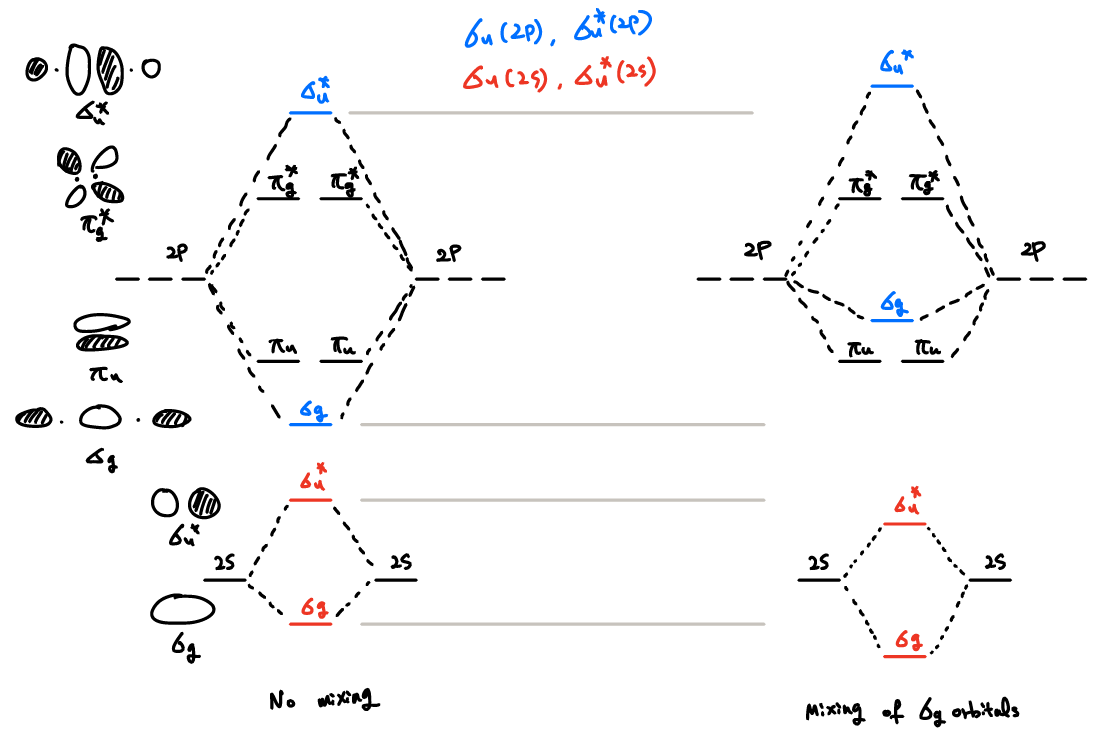 σu (2P), σu*(2P)
σu (2S), σu*(2S)
σu*
πg*
πu
σg
σu*
σg
σu*
πg* πg*
2P 2P
πu πu
σg
σu*
2S 2S
σg
No mixing
σu*
πg* πg*
2P 2P
σg
πu πu
σu*
2S 2S
σg
Mixing of σg orbitals